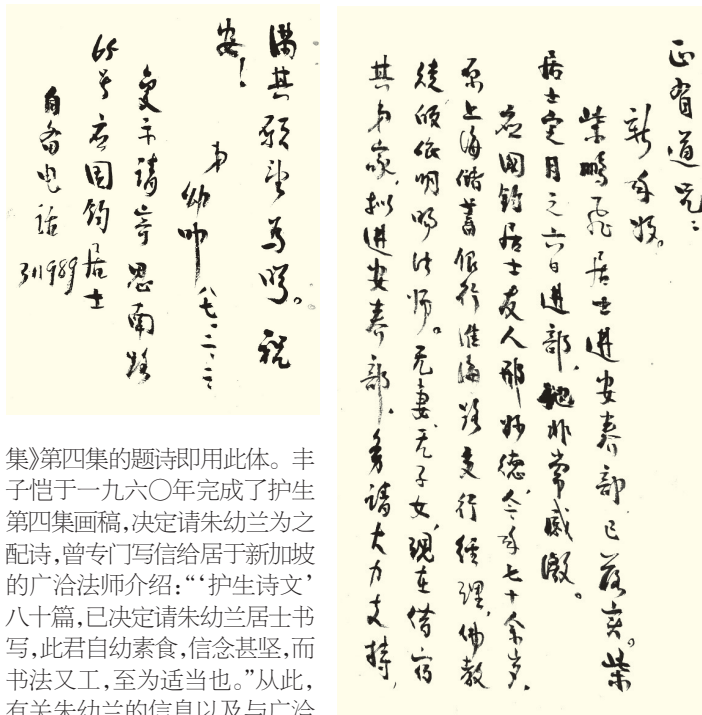 正有道兄：
新年好。
柴鹏飞居士进安养部已落实。柴
居士定月之六日进部，他非常感激。
应国钧居士友人邢妙德，今年七十余岁，
原上海储蓄银行淮海路支行经理，佛教
徒皈依明旸法师。无妻无子女，现在借宿
其弟家，拟进安养部，务请大力支持，
满其愿望为呼。祝
安！
弟幼叩
八七、二、三
复示请寄思南路
65号应国钧居士
自备电话
311989
集》第四集的题诗即用此体。丰
子恺于一九六〇年完成了护生
第四集画稿，决定请朱幼兰为之
配诗，曾专门写信给居于新加坡
的广洽法师介绍：“‘护生诗文’
八十篇，已决定请朱幼兰居士书
写，此君自幼素食，信念甚坚，而
书法又工，至为适当也。”从此，
有关朱幼兰的信息以及与广洽